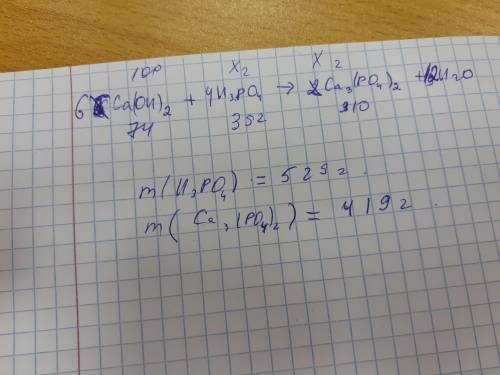 100 X₂ X 2
6 Ca(OH)₂ + 4H₃PO₄ → 2Ca₃(PO₄)₂ + 12H₂O
74 352 310
m(H₃PO₄) = 529 г.
m(Ca₃(PO₄)₂) = 419 г.